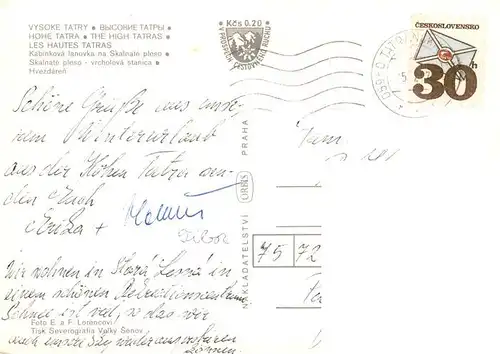 VYSOKÉ TATRY • ВЫСОКИЕ ТАТРЫ •
HOHE TATRA • THE HIGH TATRAS •
LES HAUTES TATRAS
Kabínková lanovka na Skalnaté pleso •
Skalnaté pleso - vrcholová stanica •
Hvezdáreň
Kčs 0.20
V PROSPECH CESTOVNÉHO RUCHU
ČESKOSLOVENSKO
30h
059 60 TATRAN
Schöne Grüße aus unse-
rem Winterurlaub
aus der Hohen Tatra sen-
den Euch
Erika +
Tibor
Wir wohnen in Stará Lesná in
einem schönen
Schnee ist viel, so das wir
auch unsere Ski
können.
Foto E. a F. Lorencovi
Tisk Severografia Velký Šenov
NAKLADATELSTVÍ ORBIS PRAHA
Fam.
75 72